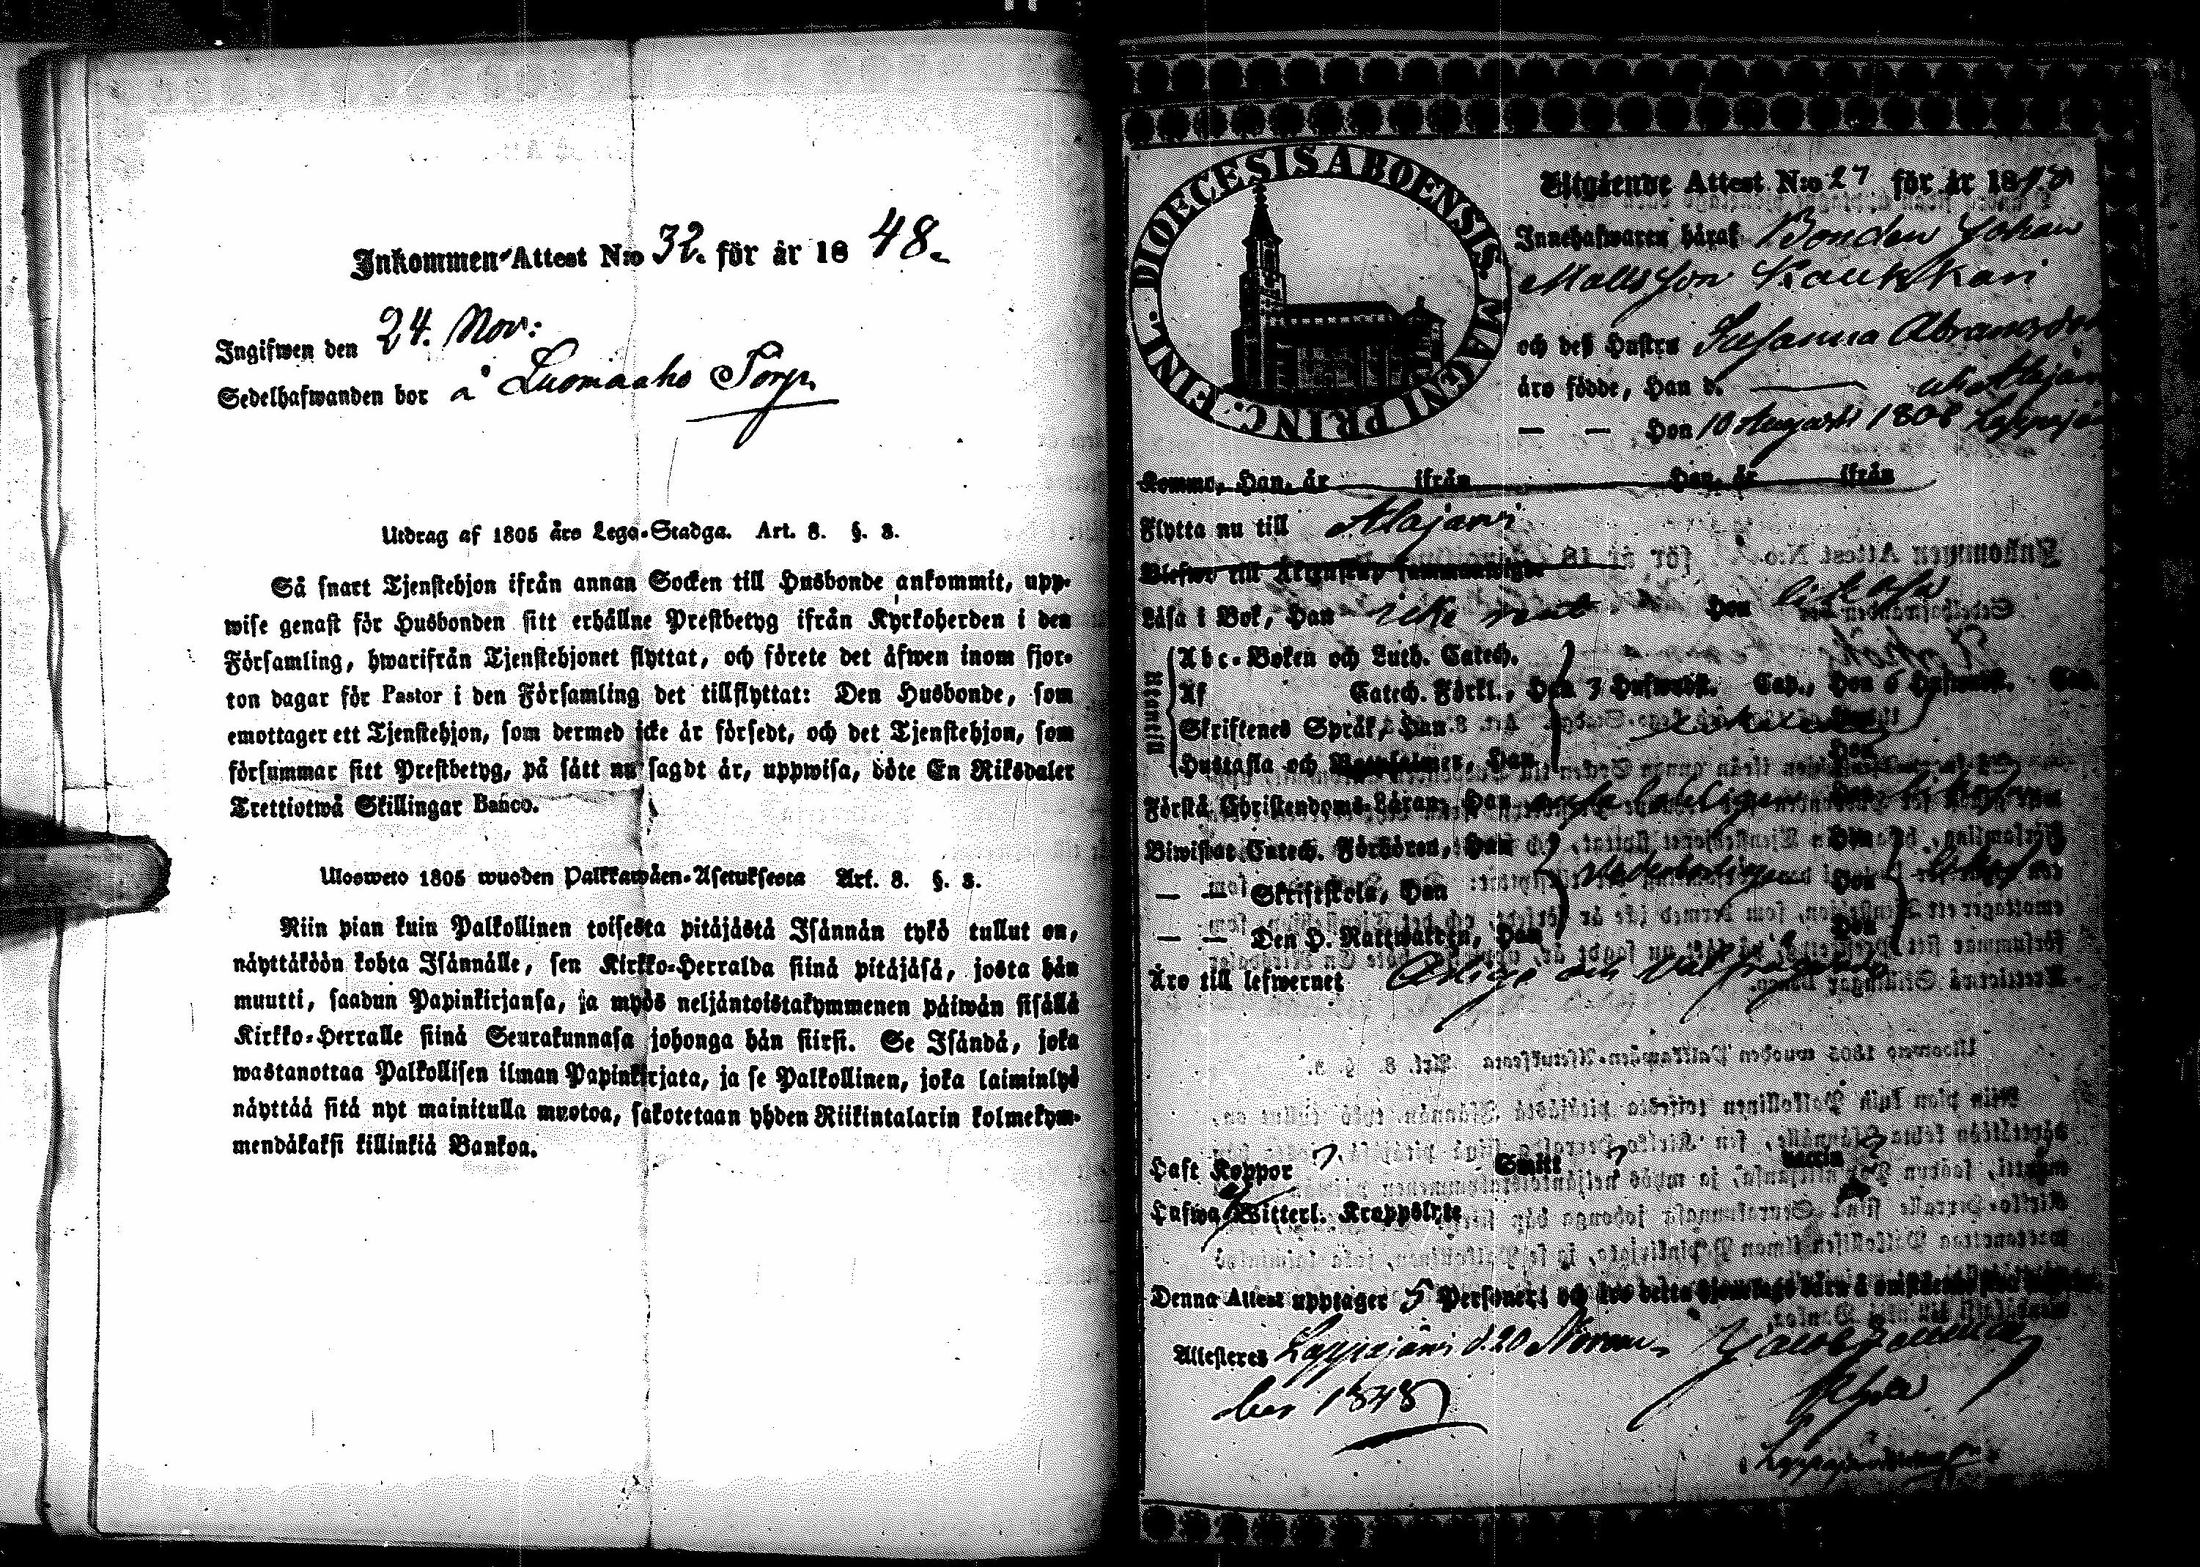 Inkommen-Attest N:o 32. för år 1848.
Ingifwen den 24. Nov:
Sedelhafwanden bor å Luomaaho Torp
Utdrag af 1805 års Lego-Stadga. Art. 8. §. 3.
Så snart Tjenstehjon ifrån annan Socken till Husbonde ankommit, upp-
wise genast för Husbonden sitt erhållne Prestbetyg ifrån Kyrkoherden i den
Församling, hwarifrån Tjenstehjonet flyttat, och förete det äfwen inom fjor-
ton dagar för Pastor i den Församling det tillflyttat: Den Husbonde, som
emottager ett Tjenstehjon, som dermed icke är försedt, och det Tjenstehjon, som
försummar sitt Prestbetyg, på sätt nu sagdt är, uppwisa, böte En Riksdaler
Trettiotwå Skillingar Banco.
Ulosweto 1805 wuoden Palkkawäen-Asetuksesta Art. 8. §. 3.
Niin pian kuin Palkollinen toisesta pitäjästä Isännän tykö tullut on,
näyttäköön kohta Isännälle, sen Kirkko-Herralda siinä pitäjäsä, josta hän
muutti, saadun Papinkirjansa, ja myös neljäntoistakymmenen päiwän sisällä
Kirkko-Herralle siinä Seurakunnasa johonga hän siirsi. Se Isändä, joka
wastanottaa Palkollisen ilman Papinkirjata, ja se Palkollinen, joka laiminlyö
näyttää sitä nyt mainitulla muotoa, sakotetaan yhden Riikintalarin kolmekym-
mendäkaksi killinkiä Bankoa.
DIOECESIS ABOENSIS. MAGNI PRINC. FINL.
Utgående Attest N:o 27 för år 1848
Innehafwaren häraf Bonden Johan
Matts son Kaukkari
och deß Hustru Susanna Abramsdotter
äro födde, Han d. Alajärvi
— — Hon 10 Augusti 1808 Lappajärvi
Komma, Han, år ifrån Hon, år ifrån
Flytta nu till Alajärvi
Läsa i Bok, Han icke rent Hon likaså
Utantill
Abc-Boken och Luth. Catech.
Af Catech. Förkl., Han 3 Hufwudst. Cap., Hon 6 Hufwudst. Cap.
Skriftenes Språk, Han
Hustafla och Botpsalmer, Han Hon
Förstå Christendoms-Läran, Han Hon
Biwistat Catech. Förhören, Han Hon
— — Skriftskola, Han Hon
— — Den H. Nattwarden, Han Hon
Äro till lefwernet Ärlige och Välfrägdade
Haft Koppor
Lufwa Witterl. Krappslyte
Denna Attest upptager 5 Personer;
Attesteres Lappajärvi d. 20 Novem-
ber 1848